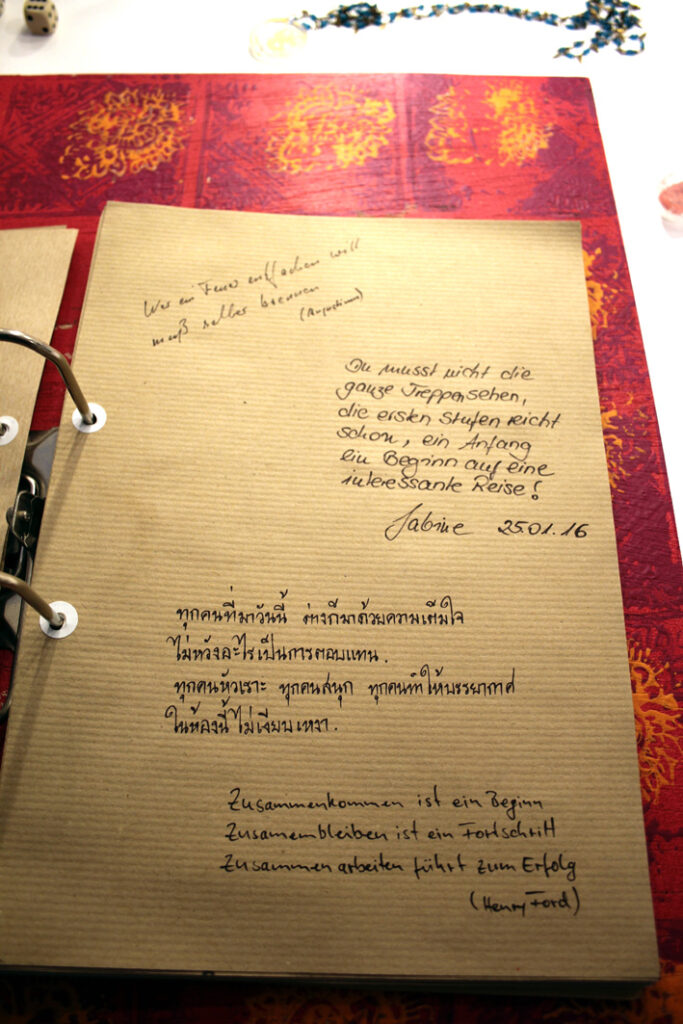 Wer ein Feuer entfachen will
muß selber brennen
(Augustinus)
Du musst nicht die
ganze Treppe sehen,
die ersten Stufen reicht
schon, ein Anfang
ein Beginn auf eine
interessante Reise!
Sabine 25.01.16
ทุกคนที่มาวันนี้ ต่างก็มาด้วยความเต็มใจ
ไม่หวังอะไรเป็นการตอบแทน.
ทุกคนหัวเราะ ทุกคนสนุก ทุกคนทำให้บรรยากาศ
ในห้องนี้ไม่เงียบเหงา.
Zusammenkommen ist ein Beginn
Zusamembleiben ist ein Fortschritt
Zusammenarbeiten führt zum Erfolg
(Henry Ford)